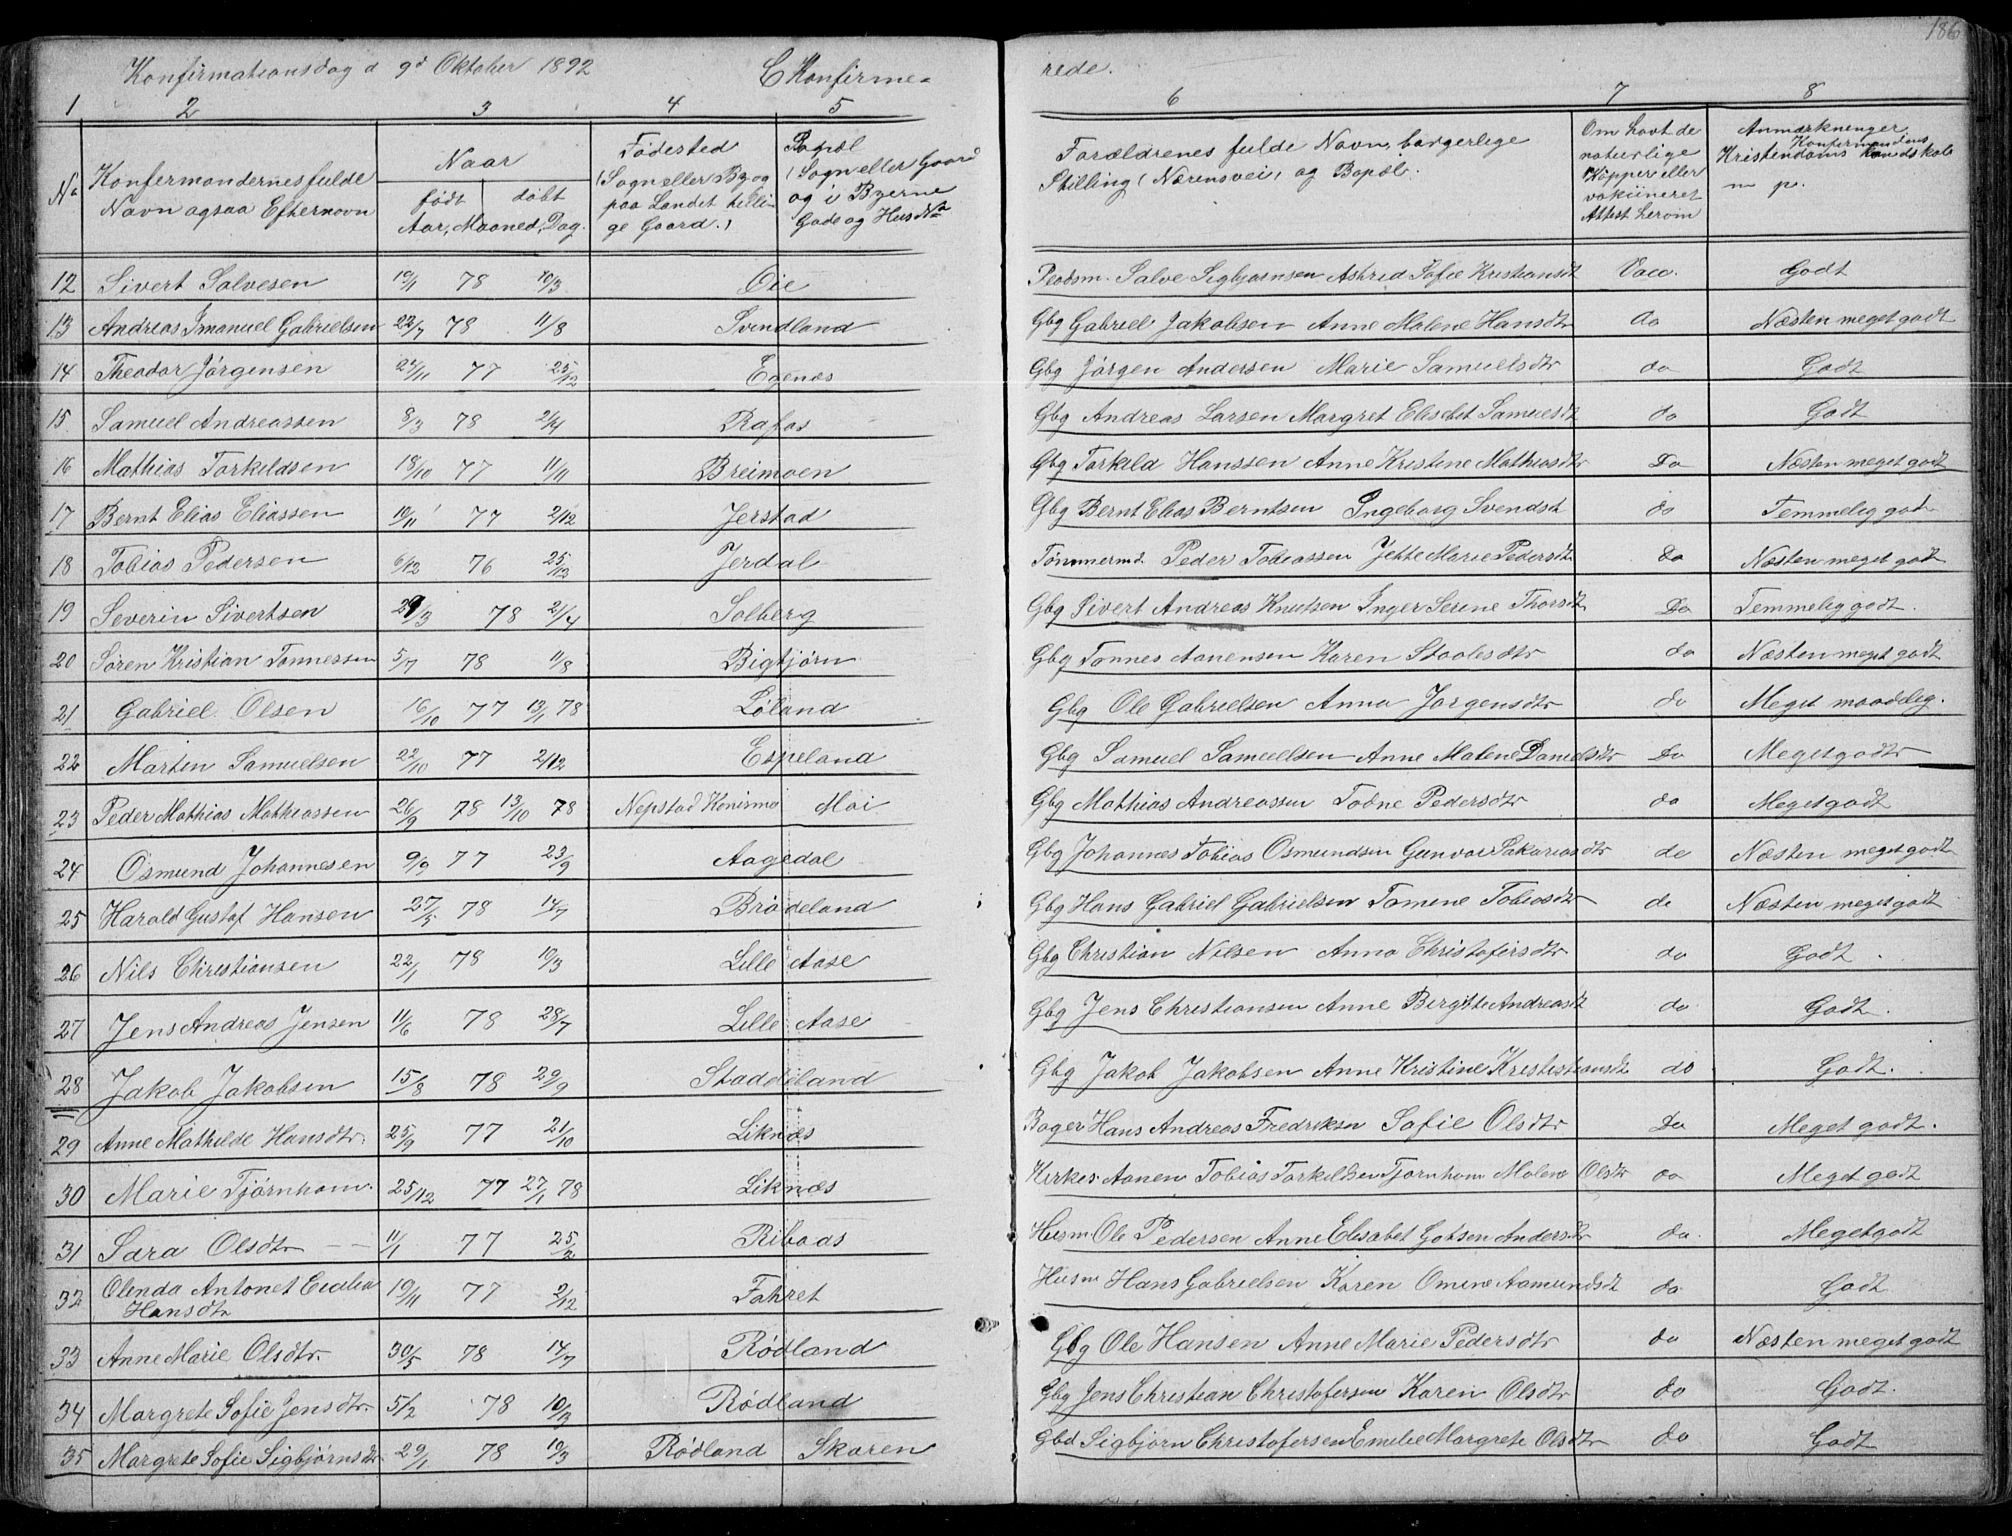 186
Konfirmationsdag d 9d Oktober 1892 C Konfirme= rede.
1 2 3 4 5 6 7 8
No Konfermandernes fulde Navn ogsaa Efternavn
Naar født døbt Aar, Maaned, Dag.
Fødested (Sogn eller By og paa Landet tillige Gaard.)
Bopæl (Sogn eller Gaard og i Byerne Gade og Hus No
Forældrenes fulde Navn, borgerlige Stilling (Nærensvei) og Bopæl.
Om havt de naturlige Kopper eller vakcineret Attest herom
Anmærkninger Konfirmandens Kristendoms Kundskab m p.
12 Sivert Salvesen 10/1 78 10/3 Oie Pladsm. Salve Sigbjørnsen Astrid Sofie Kristiansdt Vacc. Godt
13 Andreas Imanuel Gabrielsen 22/7 78 11/8 Svindland Gbg Gabriel Jakobsen Anne Malene Hansdtr do Næsten meget godt
14 Theodor Jørgensen 24/11 77 25/12 Egenæs Gbg Jørgen Andersen Marie Samuelsdtr do Godt
15 Samuel Andreassen 8/3 78 2/4 Rafos Gbg Andreas Larsen Margret Elisebet Samuelsdt do Godt
16 Mathias Torkildsen 18/10 77 11/11 Breimoen Gbg Torkild Hanssen Anne Kristine Mathiasdtr Do Næsten meget godt
17 Bernt Elias Eliassen 10/11 77 2/12 Jerstad Gbg Bernt Elias Berntsen Ingeborg Svendsdt do Temmelig godt
18 Tobias Pedersen 6/12 76 25/12 Jerdal Tømmermd Peder Tobiassen Jette Marie Pedersdt Do Næsten meget godt
19 Severin Sivertsen 29/3 78 2/4 Solberg Gbg Sivert Andreas Knutsen Inger Serine Thorsdtr Do Temmelig godt.
20 Søren Kristian Tønnessen 5/7 78 11/8 Bigtjørn Gbg Tønnes Aanensen Karen Staalesdtr do Næsten meget godt
21 Gabriel Olsen 16/10 77 13/1 78 Løland Gbg Ole Gabrielsen Anna Jørgensdtr do Meget maadelig.
22 Martin Samuelsen 22/10 77 2/12 Espeland Gbg Samuel Samuelsen Anne Malene Danielsdtr Do Meget godt
23 Peder Mathias Mathiassen 26/9 78 13/10 78 Nepstad Konismo Moi Gbg Mathias Andreassen Todne Pedersdtr do Meget godt
24 Osmund Johannesen 9/9 77 23/9 Aagedal Gbg Johannes Tobias Osmundsen Gunvor Sakariasdtr do Næsten meget godt
25 Harald Gustaf Hansen 27/5 78 14/7 Brødeland Gbg Hans Gabriel Gabrielsen Tomine Tobiasdtr do Næsten meget godt
26 Nils Christiansen 22/1 78 10/3 Lille Aase Gbg Christian Nilsen Anna Christofersdtr do Godt.
27 Jens Andreas Jensen 11/6 78 28/7 Lille Aase Gbg Jens Christiansen Anne Birgitte Andreasdt do Godt.
28 Jakob Jakobsen 15/8 78 29/9 Staddeland Gbg Jakob Jakobsen Anne Kristine Krististiansdt do Godt.
29 Anne Mathilde Hansdtr. 25/9 77 21/10 Liknæs Bager Hans Andreas Fredriksen Sofie Olsdtr Do Meget godt.
30 Marie Tjørnhom. 25/12 77 27/1 78 Liknæs Kirkes. Aanen Tobias Torkildsen Tjørnhom Malene Olsdtr do Meget godt
31 Sara Olsdtr 11/1 77 25/2 Ribaas Husm. Ole Pedersen Anne Elisabet Gotsen Andersdtr do. Meget godt
32 Olinda Antonet Hansdtr 19/11 77 2/12 Fahret Husm Hans Gabrielsen Karen Omine Aamundsdt do. Godt.
33 Anne Marie Olsdtr. 30/5 78 14/7 Rødland Gbg Ole Hansen Anne Marie Pedersdtr do Næsten meget godt
34 Margrete Sofie Jensdtr. 5/2 78 10/3 Rødland Gbg Jens Christian Christofersen Karen Olsdtr do Godt.
35 Margrete Sofie Sigbjørnsdtr 29/1 78 10/3 Rødland Skaren Gbd Sigbjørn Christofersen Emilie Margrete Olsdtr do Godt